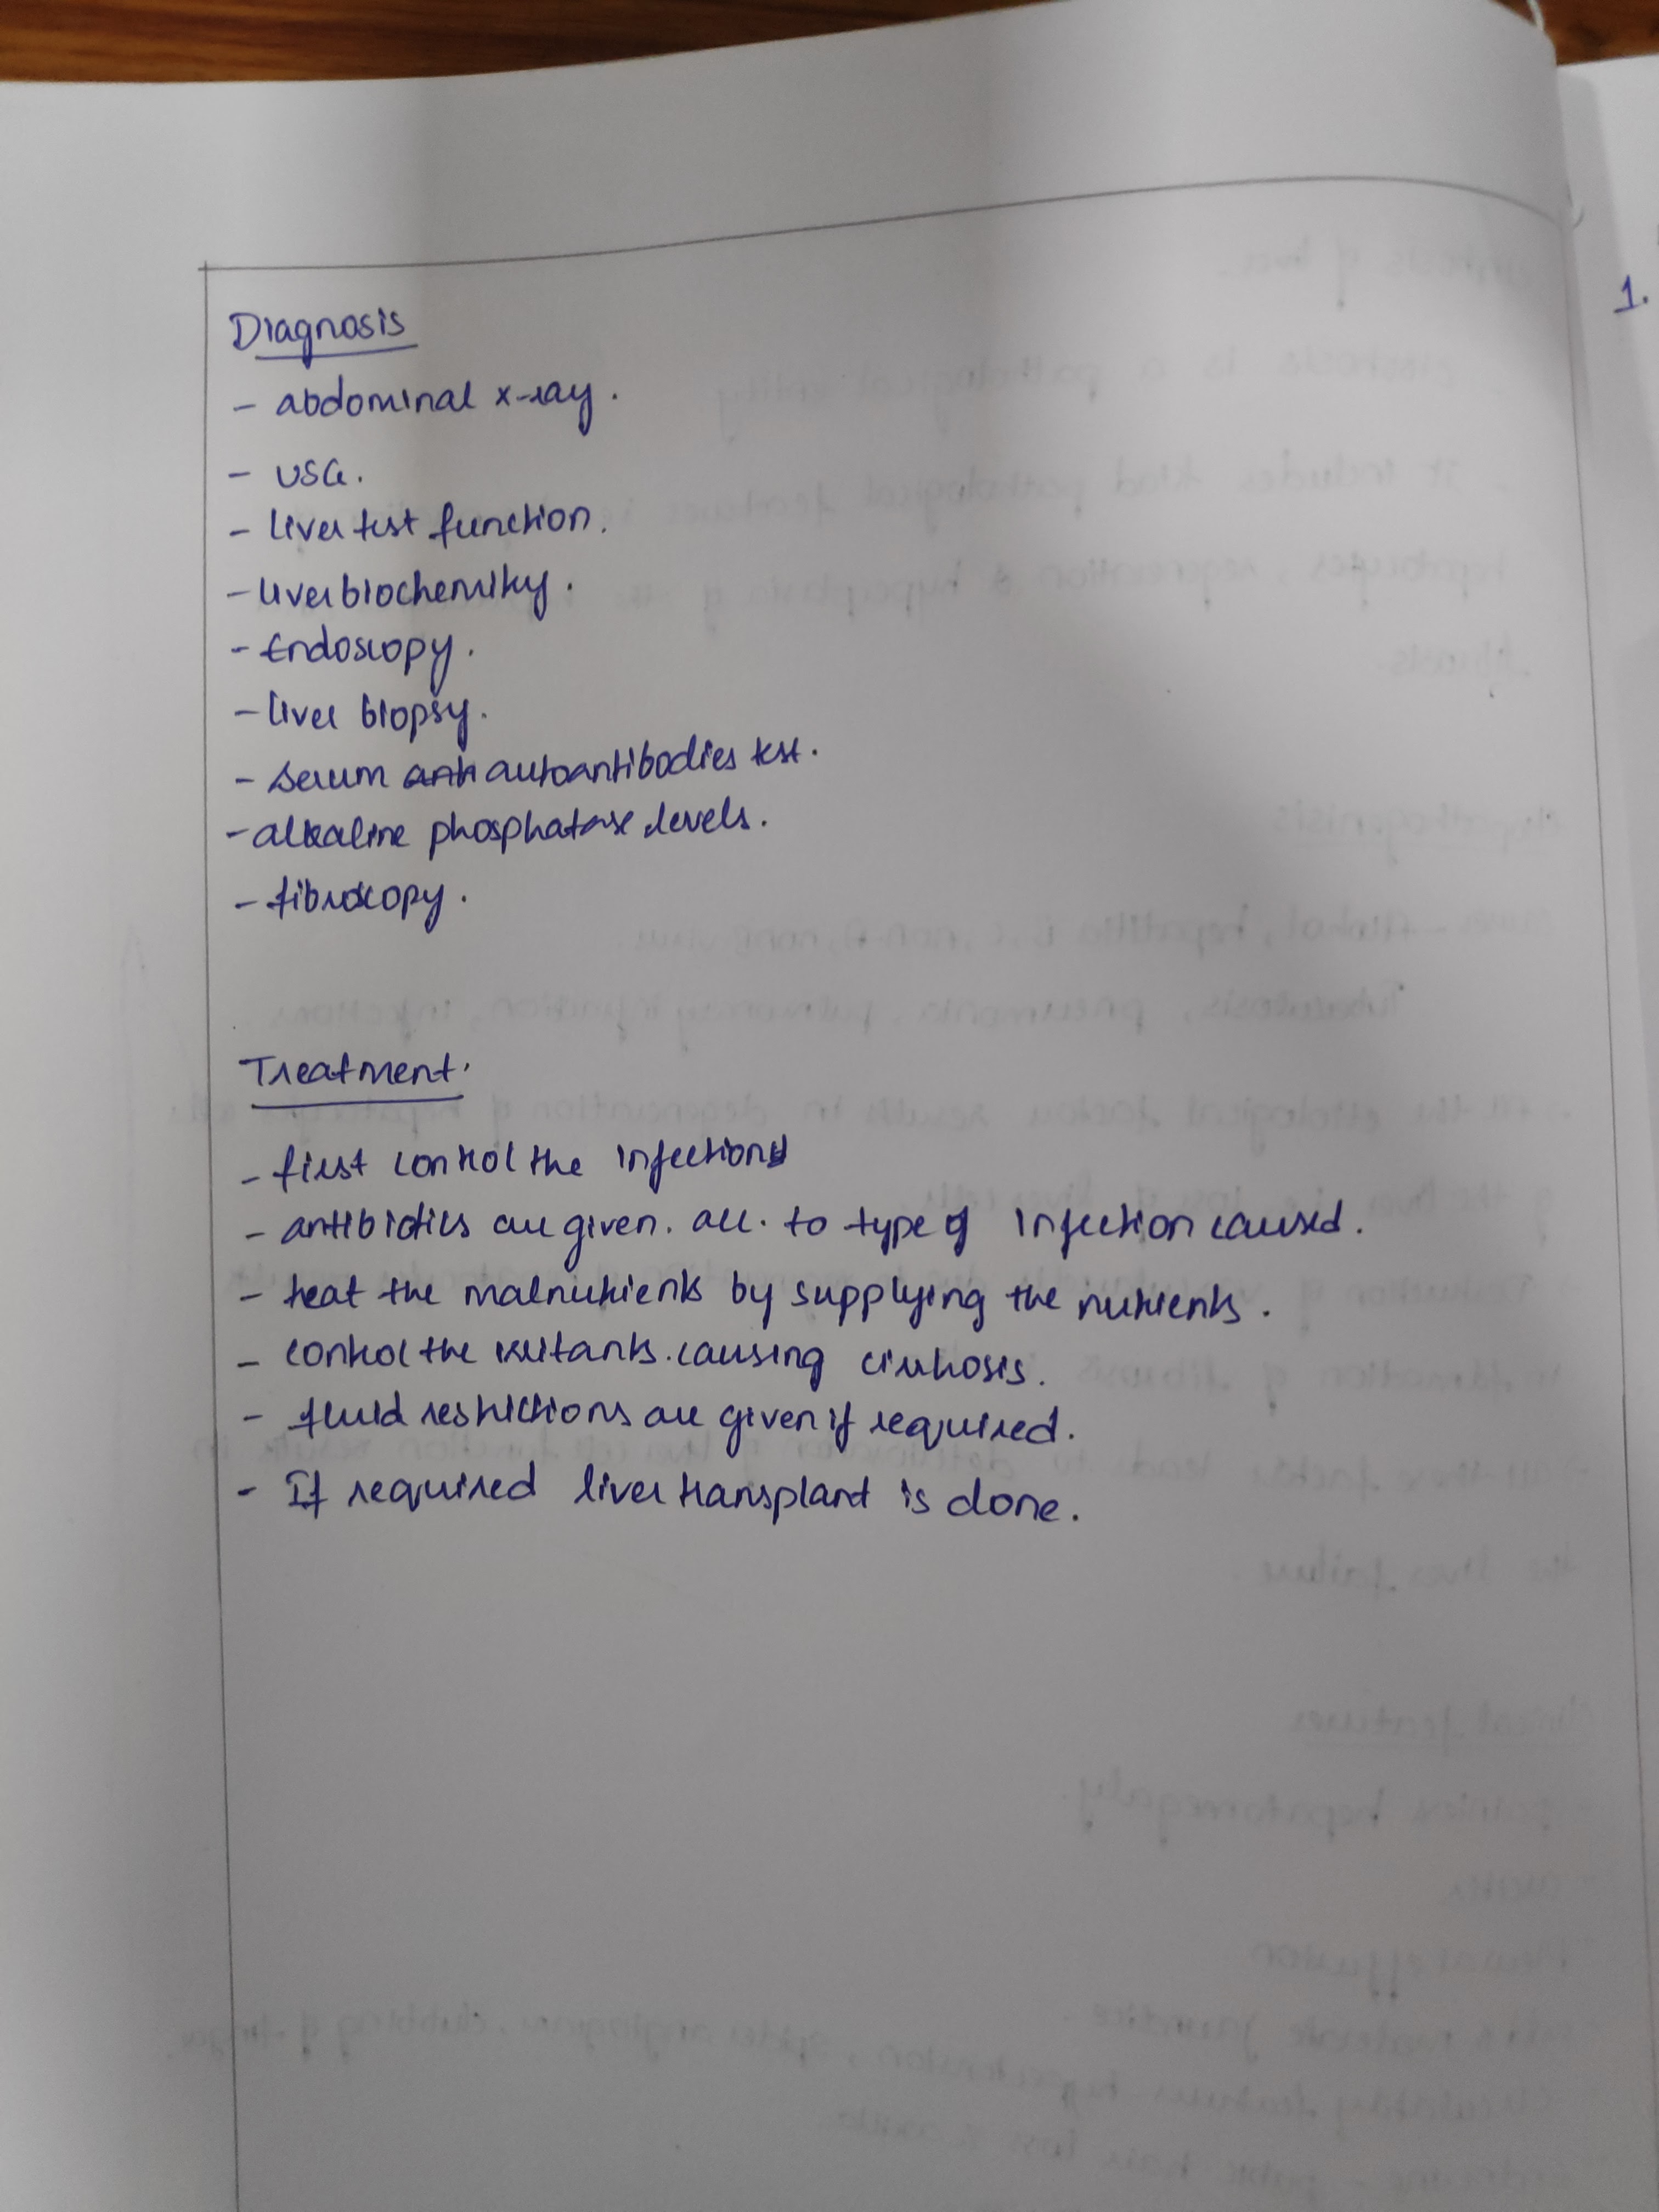 Diagnosis
- abdominal x-ray.
- USG.
- liver test function.
- liver biochemisty.
- Endoscopy.
- liver biopsy.
- serum anti autoantibodies test.
- alkaline phosphatase levels.
- fibroscopy.
Treatment.
- first control the infections
- antibiotics are given. acc. to type of infection caused.
- treat the malnutrients by supplying the nutrients.
- control the irritants. causing cirrhosis.
- fluid restrictions are given if required.
- If required liver transplant is done.
1.